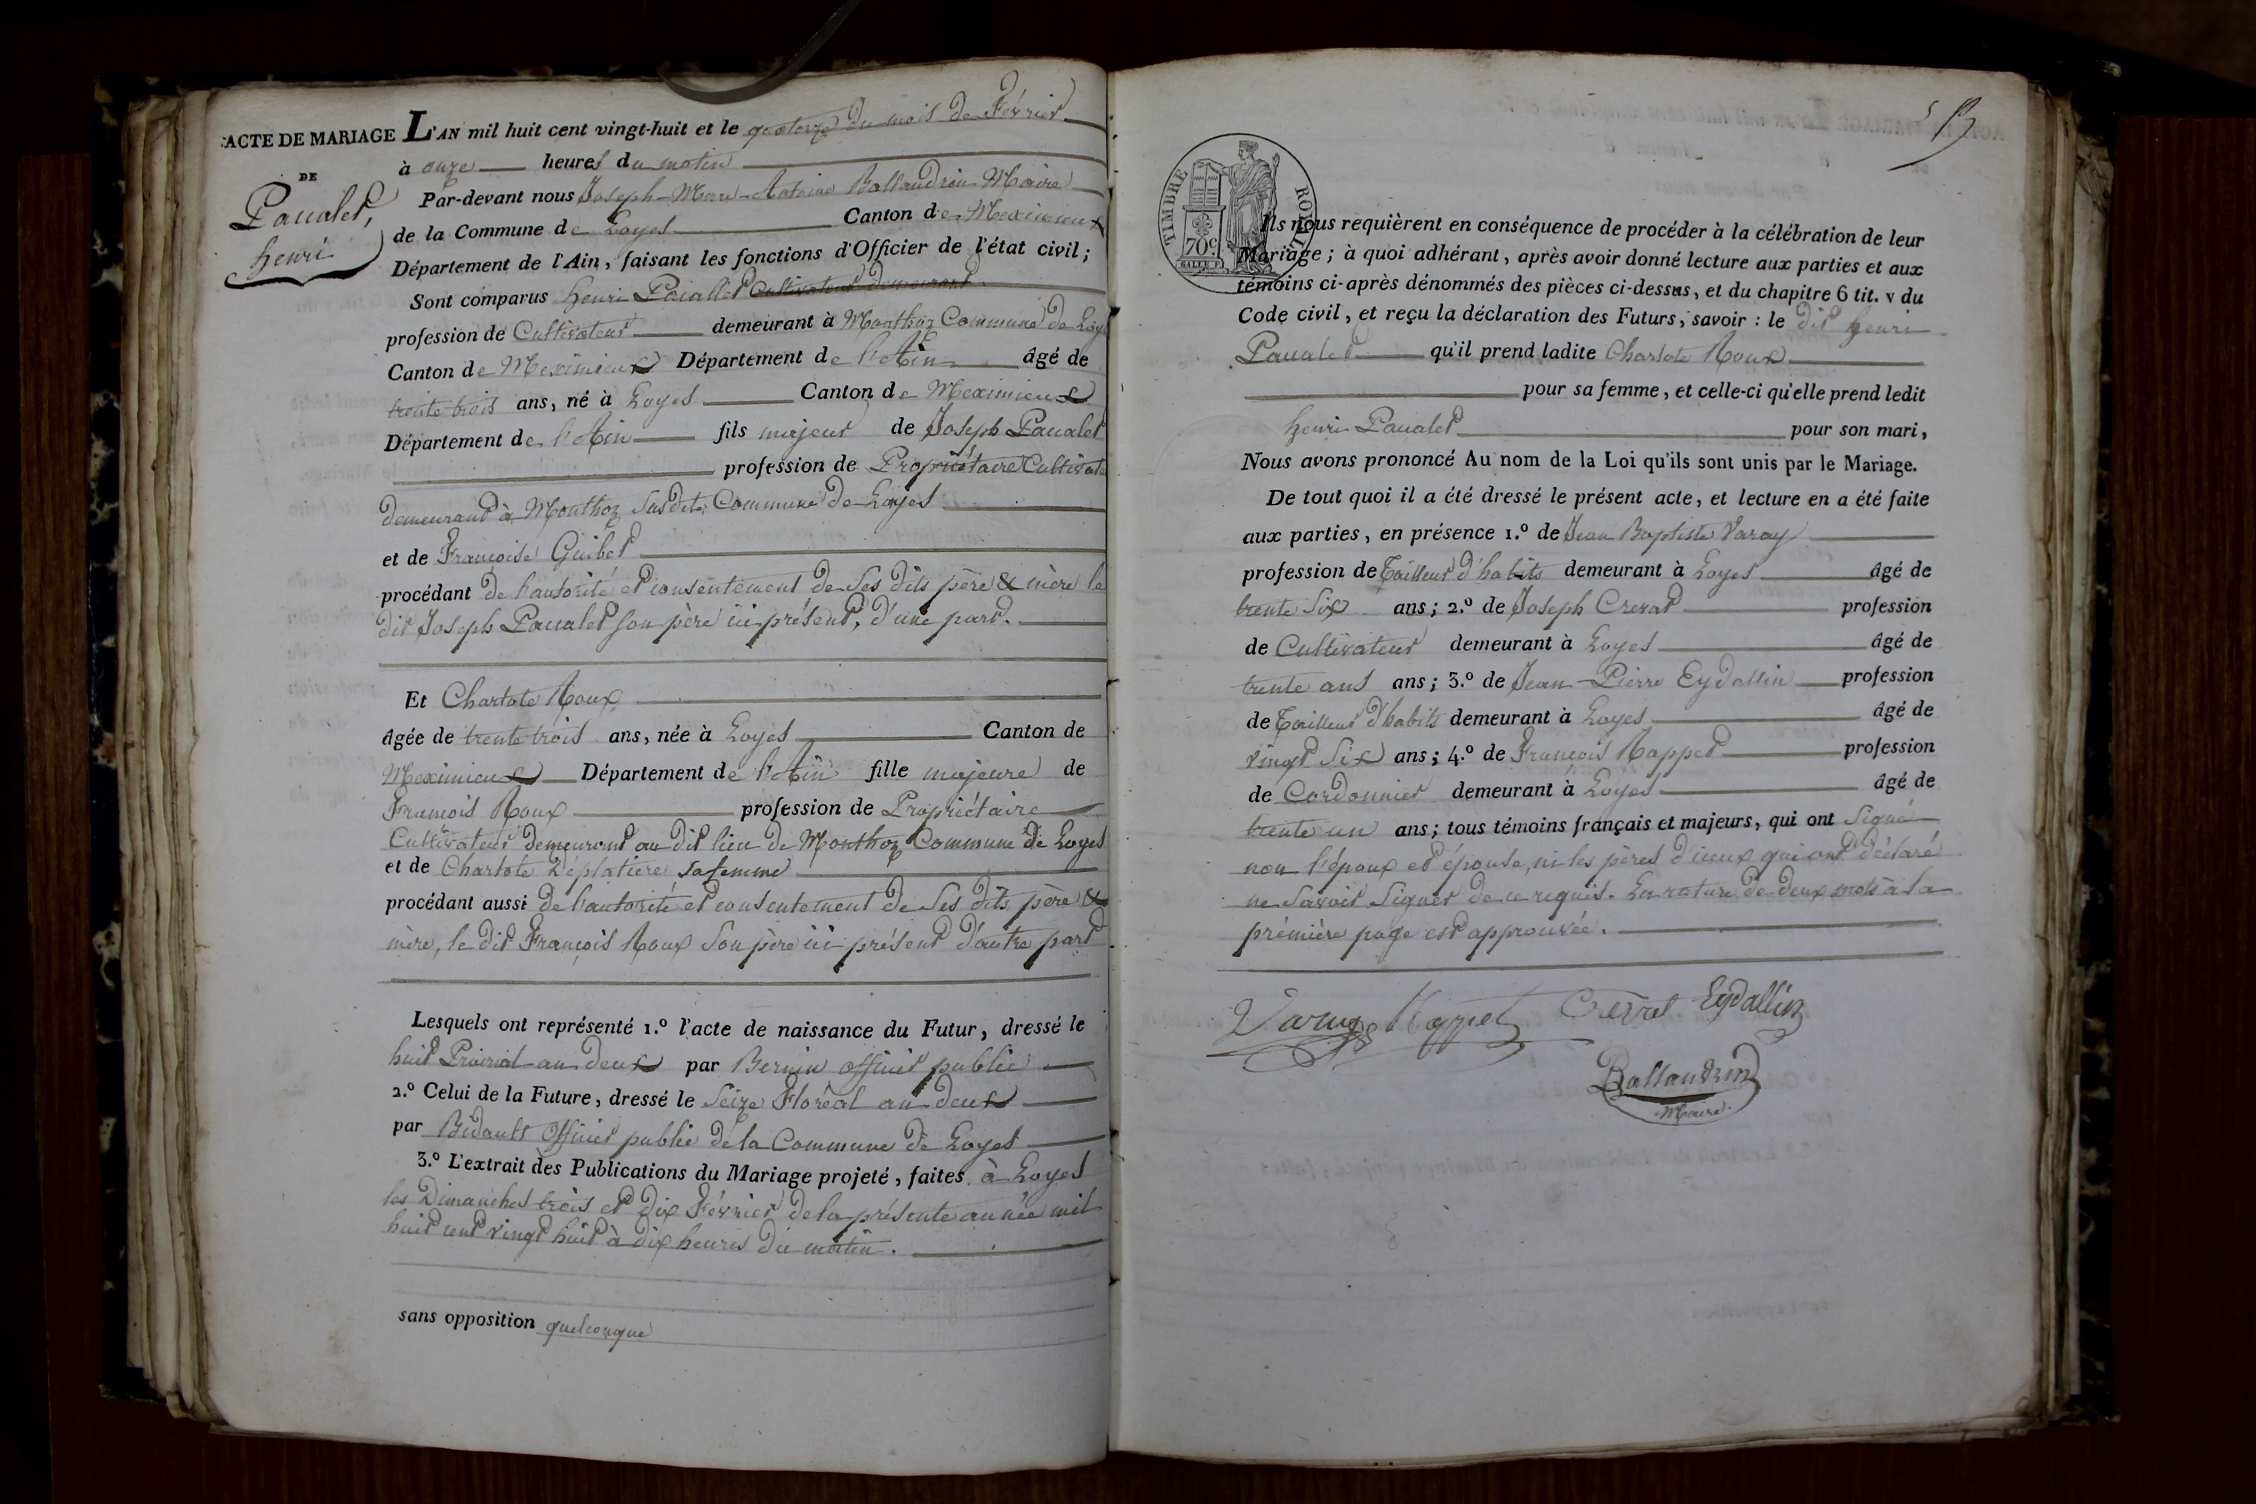 ACTE DE MARIAGE
DE
Paualet,
henri
L'AN mil huit cent vingt-huit et le quatorze du mois de Février
à onze heures du matin
Par-devant nous Joseph-Marie-Antoine Ballandrin Maire
de la Commune de Loyes Canton de Meximieux
Département de l'Ain, faisant les fonctions d'Officier de l'état civil;
Sont comparus henri Paualet Cultivateur demeurant
profession de Cultivateur demeurant à Monthoz Commune de Loyes
Canton de Meximieux Département de l'Ain âgé de
trente trois ans, né à Loyes Canton de Meximieux
Département de l'Ain fils majeur de Joseph Paualet
profession de Propriétaire Cultivate
demeurant à Monthoz Susdite Commune de Loyes
et de Françoise Guibet
procédant de l'autorité et consentement de Ses dits père & mère le
dit Joseph Paualet Son père ici présent, d'une part.
Et Charlote Roux
âgée de trente trois ans, née à Loyes Canton de
Meximieux Département de l'Ain fille majeure de
François Roux profession de Propriétaire
Cultivateur demeurant au dit lieu de Monthoz Commune de Loyes
et de Charlote Déplatière Sa femme
procédant aussi de l'autorité et consentement de Ses dits père &
mère, le dit François Roux Son père ici présent d'autre part
Lesquels ont représenté 1.º l'acte de naissance du Futur, dressé le
huit Prairial an deux par Bernin officier public
2.º Celui de la Future, dressé le Seize Floréal an deux
par Bidault Officier public de la Commune de Loyes
3.º L'extrait des Publications du Mariage projeté, faites à Loyes
les Dimanches trois et dix Février de la présente année mil
huit cent vingt huit à dix heures du matin.
sans opposition quelconque
TIMBRE ROYAL
70c
Ils nous requièrent en conséquence de procéder à la célébration de leur
Mariage; à quoi adhérant, après avoir donné lecture aux parties et aux
témoins ci-après dénommés des pièces ci-dessus, et du chapitre 6 tit. v du
Code civil, et reçu la déclaration des Futurs, savoir : le dit henri
Paualet qu'il prend ladite Charlote Roux
pour sa femme, et celle-ci qu'elle prend ledit
henri Paualet pour son mari,
Nous avons prononcé Au nom de la Loi qu'ils sont unis par le Mariage.
De tout quoi il a été dressé le présent acte, et lecture en a été faite
aux parties, en présence 1.º de Jean Baptiste Varay
profession de Tailleur d'habits demeurant à Loyes âgé de
trente Six ans; 2.º de Joseph Crevat profession
de Cultivateur demeurant à Loyes âgé de
trente ans ans; 3.º de Jean-Pierre Eydallin profession
de Tailleur d'habits demeurant à Loyes âgé de
vingt Six ans; 4.º de François Rappet profession
de Cordonnier demeurant à Loyes âgé de
trente un ans; tous témoins français et majeurs, qui ont Signé
non l'époux et épouse, ni les pères d'iceux qui ont déclaré
ne Savoir Signer de ce requis. La rature de deux mots à la
prémière page est approuvée.
Varay Rappet Crevat Eydallin
Ballandrin
Maire